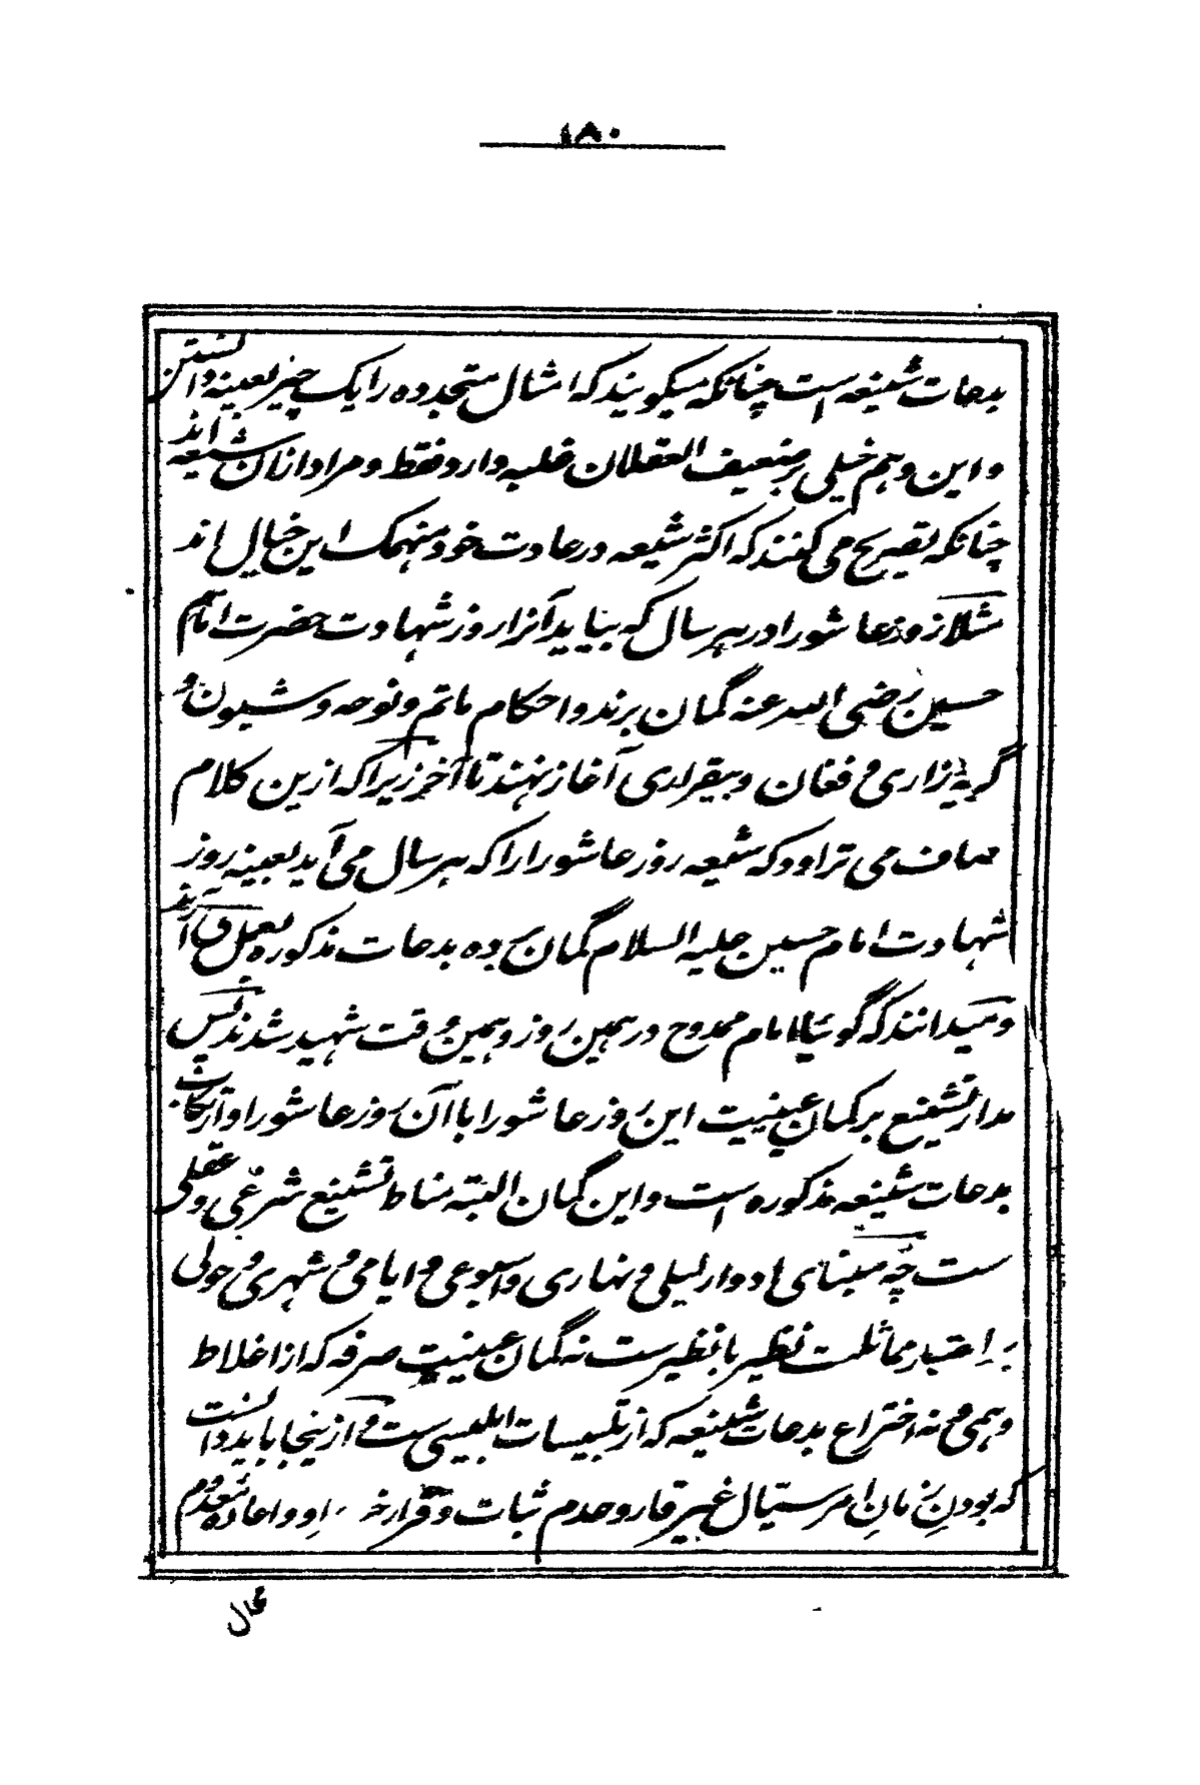 ١٨٠
بدعات شنیعه است چنانکه میگویند که امثال متجدده را یک چیز بعینه دانستن
و این وهم خیلی بر ضعیف العقلان غلبه دارد فقط و مراد ازان شیعه اند
چنانکه تصریح می کنند که اکثر شیعه در عادت خود منهمک این خیال اند
مثلا روز عاشورا در هر سال که بیاید آنرا روز شهادت حضرت امام
حسین رضی الله عنه گمان برند و احکام ماتم و نوحه و شیون و
گریه زاری و فغان و بیقراری آغاز نهند تا آخر زیرا که ازین کلام
صاف می تراود که شیعه روز عاشورا را که هر سال می آید بعینه روز
شهادت امام حسین علیه السلام گمان برده بدعات مذکوره بعمل می آرند
و میدانند که گویا امام ممدوح در همین روز و همین وقت شهید شدند پس
مدار تشنیع بر گمان عینیت این روز عاشورا با آن روز عاشورا و ارتکاب
بدعات شنیعه مذکوره است و این گمان البته مناط تشنیع شرعی و عقلی
ست چه مبنای ادوار لیلی و نهاری و اسبوعی و ایامی و شهری و حولی
بر اعتبار مماثلت نظیر با نظیرست نه گمان عینیت صرفه که از اغلاط
وهمی و نه اختراع بدعات شنیعه که از تلبیسات ابلیسی ست و ازینجا باید دانست
که بودن زمان امر سیال غیر قار و عدم ثبات و قرار او و اعاده معدوم
محال